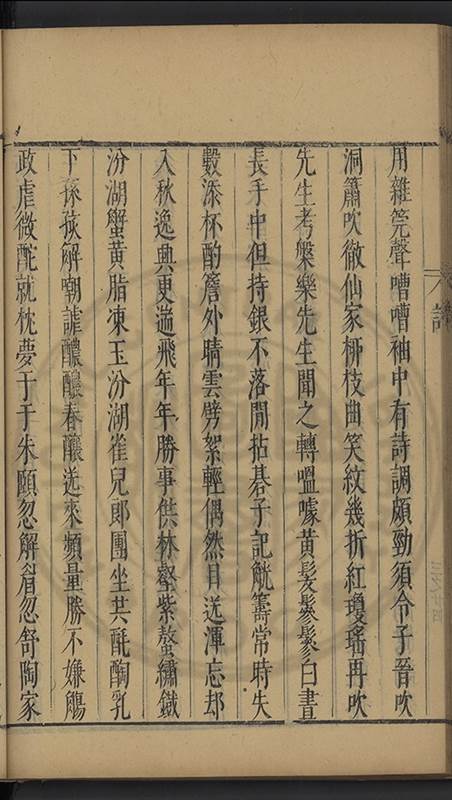 用雜筦聲嘈嘈袖中有詩調頗勁須令子晉吹
洞簫吹徹仙家栁枝曲笑紋幾折紅瓊瑤再吹
先生考槃樂先生聞之轉嗢噱黃髮鬖鬖白晝
長手中但持銀不落閒拈碁子記觥籌常時失
數添杯酌簷外晴雲劈絮輕偶然目送渾忘却
入秋逸興更遄飛年年勝事供林壑紫螯繡鐵
汾湖蟹黃脂凍玉汾湖雀兒郎團坐共酕醄乳
下孫孩解嘲謔醲醲春釀送來頻量勝不嫌觴
政虐微酡就枕夢于于朱頤忽解眉忽舒陶家